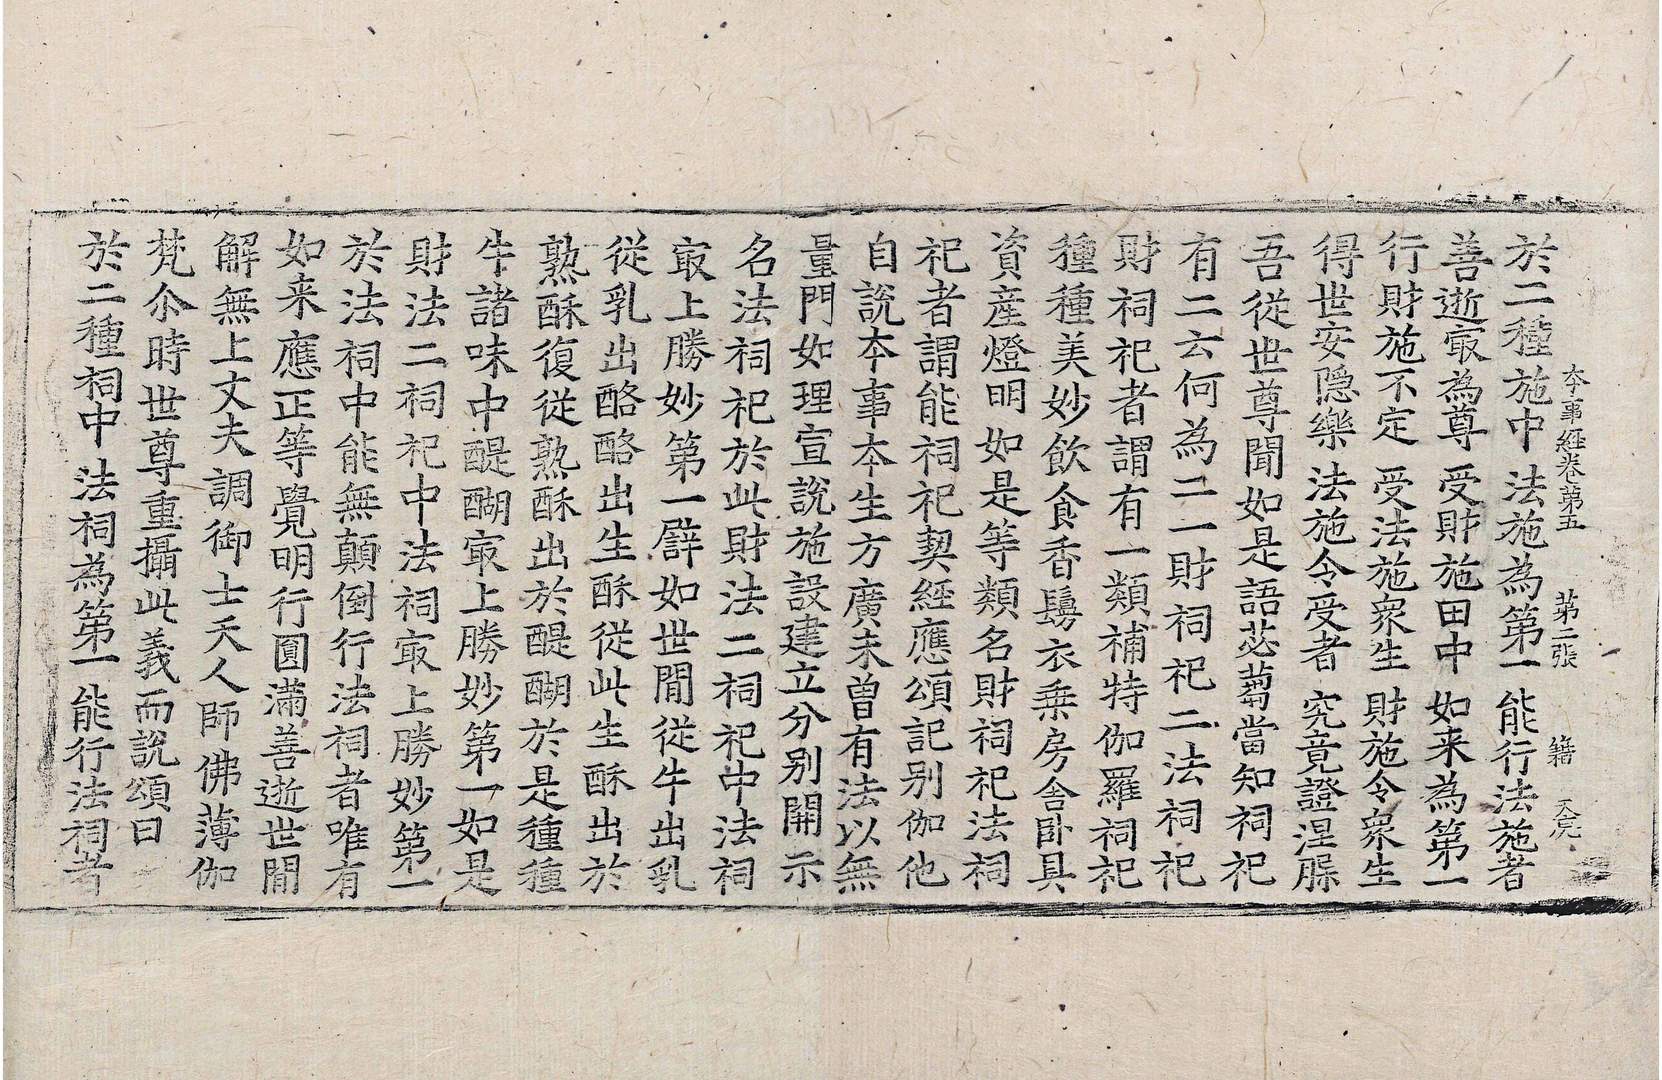 本事經卷第五 第二張 籍 天亮
於二種施中 法施為第一 能行法施者
善逝㝡為尊 受財施田中 如来為第一
行財施不定 受法施衆生 財施令衆生
得世安隠樂 法施令受者 究竟證涅槃
吾從世尊聞如是語苾蒭當知祠祀
有二云何為二一財祠祀二法祠祀
財祠祀者謂有一類補特伽羅祠祀
種種美妙飲食香鬘衣乗房舎卧具
資産燈明如是等類名財祠祀法祠
祀者謂能祠祀契經應頌記别伽他
自說夲事夲生方廣未曾有法以無
量門如理宣說施設建立分别開示
名法祠祀於此財法二祠祀中法祠
㝡上勝妙第一譬如世間從牛出乳
從乳出酪酪出生酥從此生酥出於
熟酥復從熟酥出於醍醐於是種種
牛諸味中醍醐㝡上勝妙第一如是
財法二祠祀中法祠㝡上勝妙第一
於法祠中能無顛倒行法祠者唯有
如来應正等覺明行圓滿善逝世間
解無上丈夫調御士天人師佛薄伽
梵尒時世尊重攝此義而說頌曰
於二種祠中 法祠為第一 能行法祠者